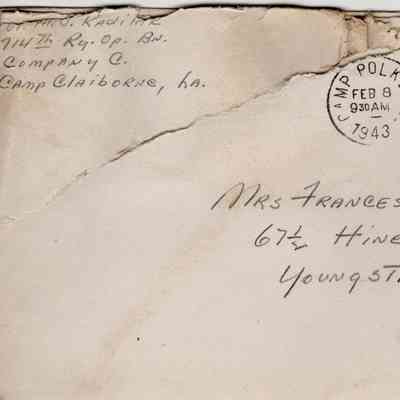 M.J. Kadilak
714th Ry. Op. Bn.
Company C.
Camp Claiborne, La.
CAMP POLK
FEB 8
930 AM
1943
Mrs Frances
67½ Hine
Youngst